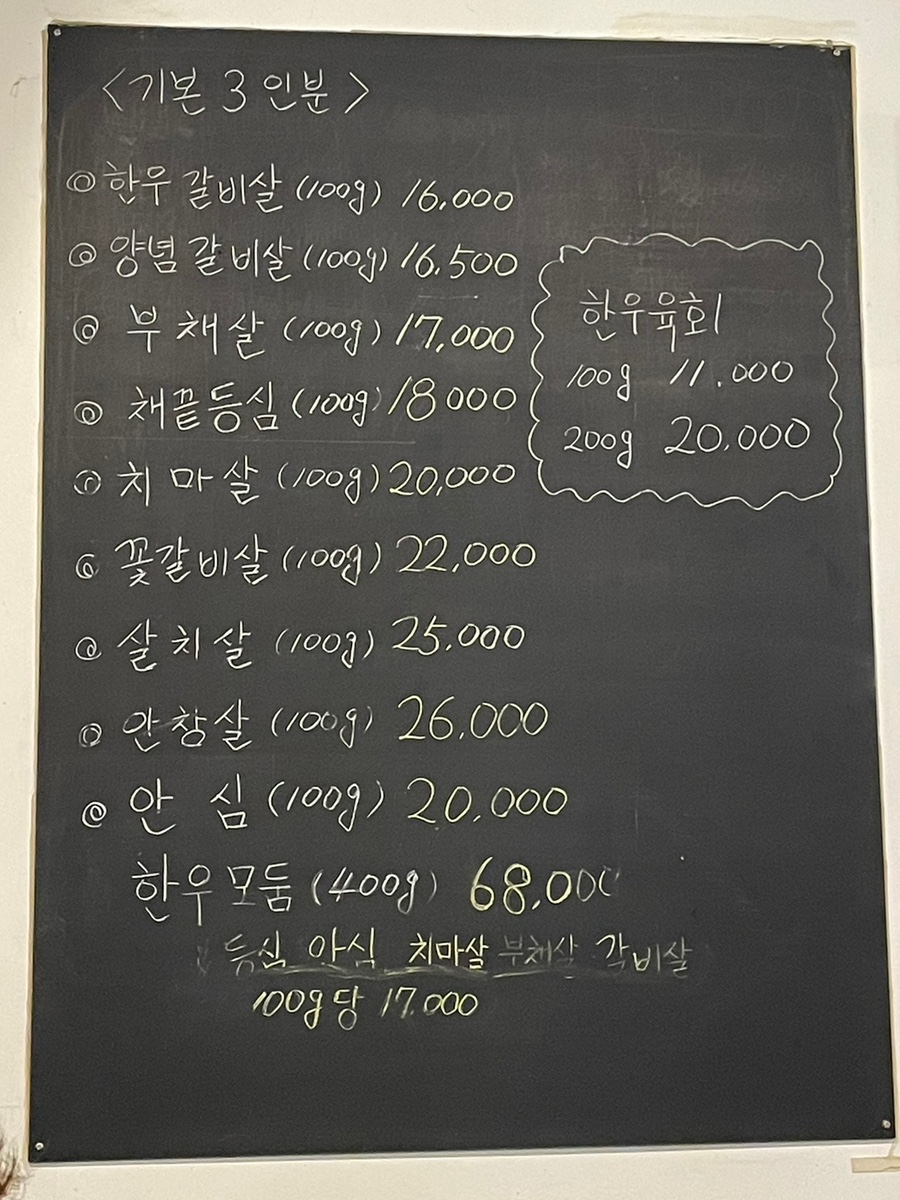 <기본 3인분>
◎ 한우 갈비살 (100g) 16,000
◎ 양념 갈비살 (100g) 16,500
◎ 부채살 (100g) 17,000
◎ 채끝등심 (100g) 18000
◎ 치마살 (100g) 20,000
◎ 꽃갈비살 (100g) 22,000
◎ 살치살 (100g) 25,000
◎ 안창살 (100g) 26,000
◎ 안심 (100g) 20,000
한우모둠 (400g) 68,000
등심 치마살 부채살 갈비살
100g당 17.000
한우육회
100g 11.000
200g 20.000